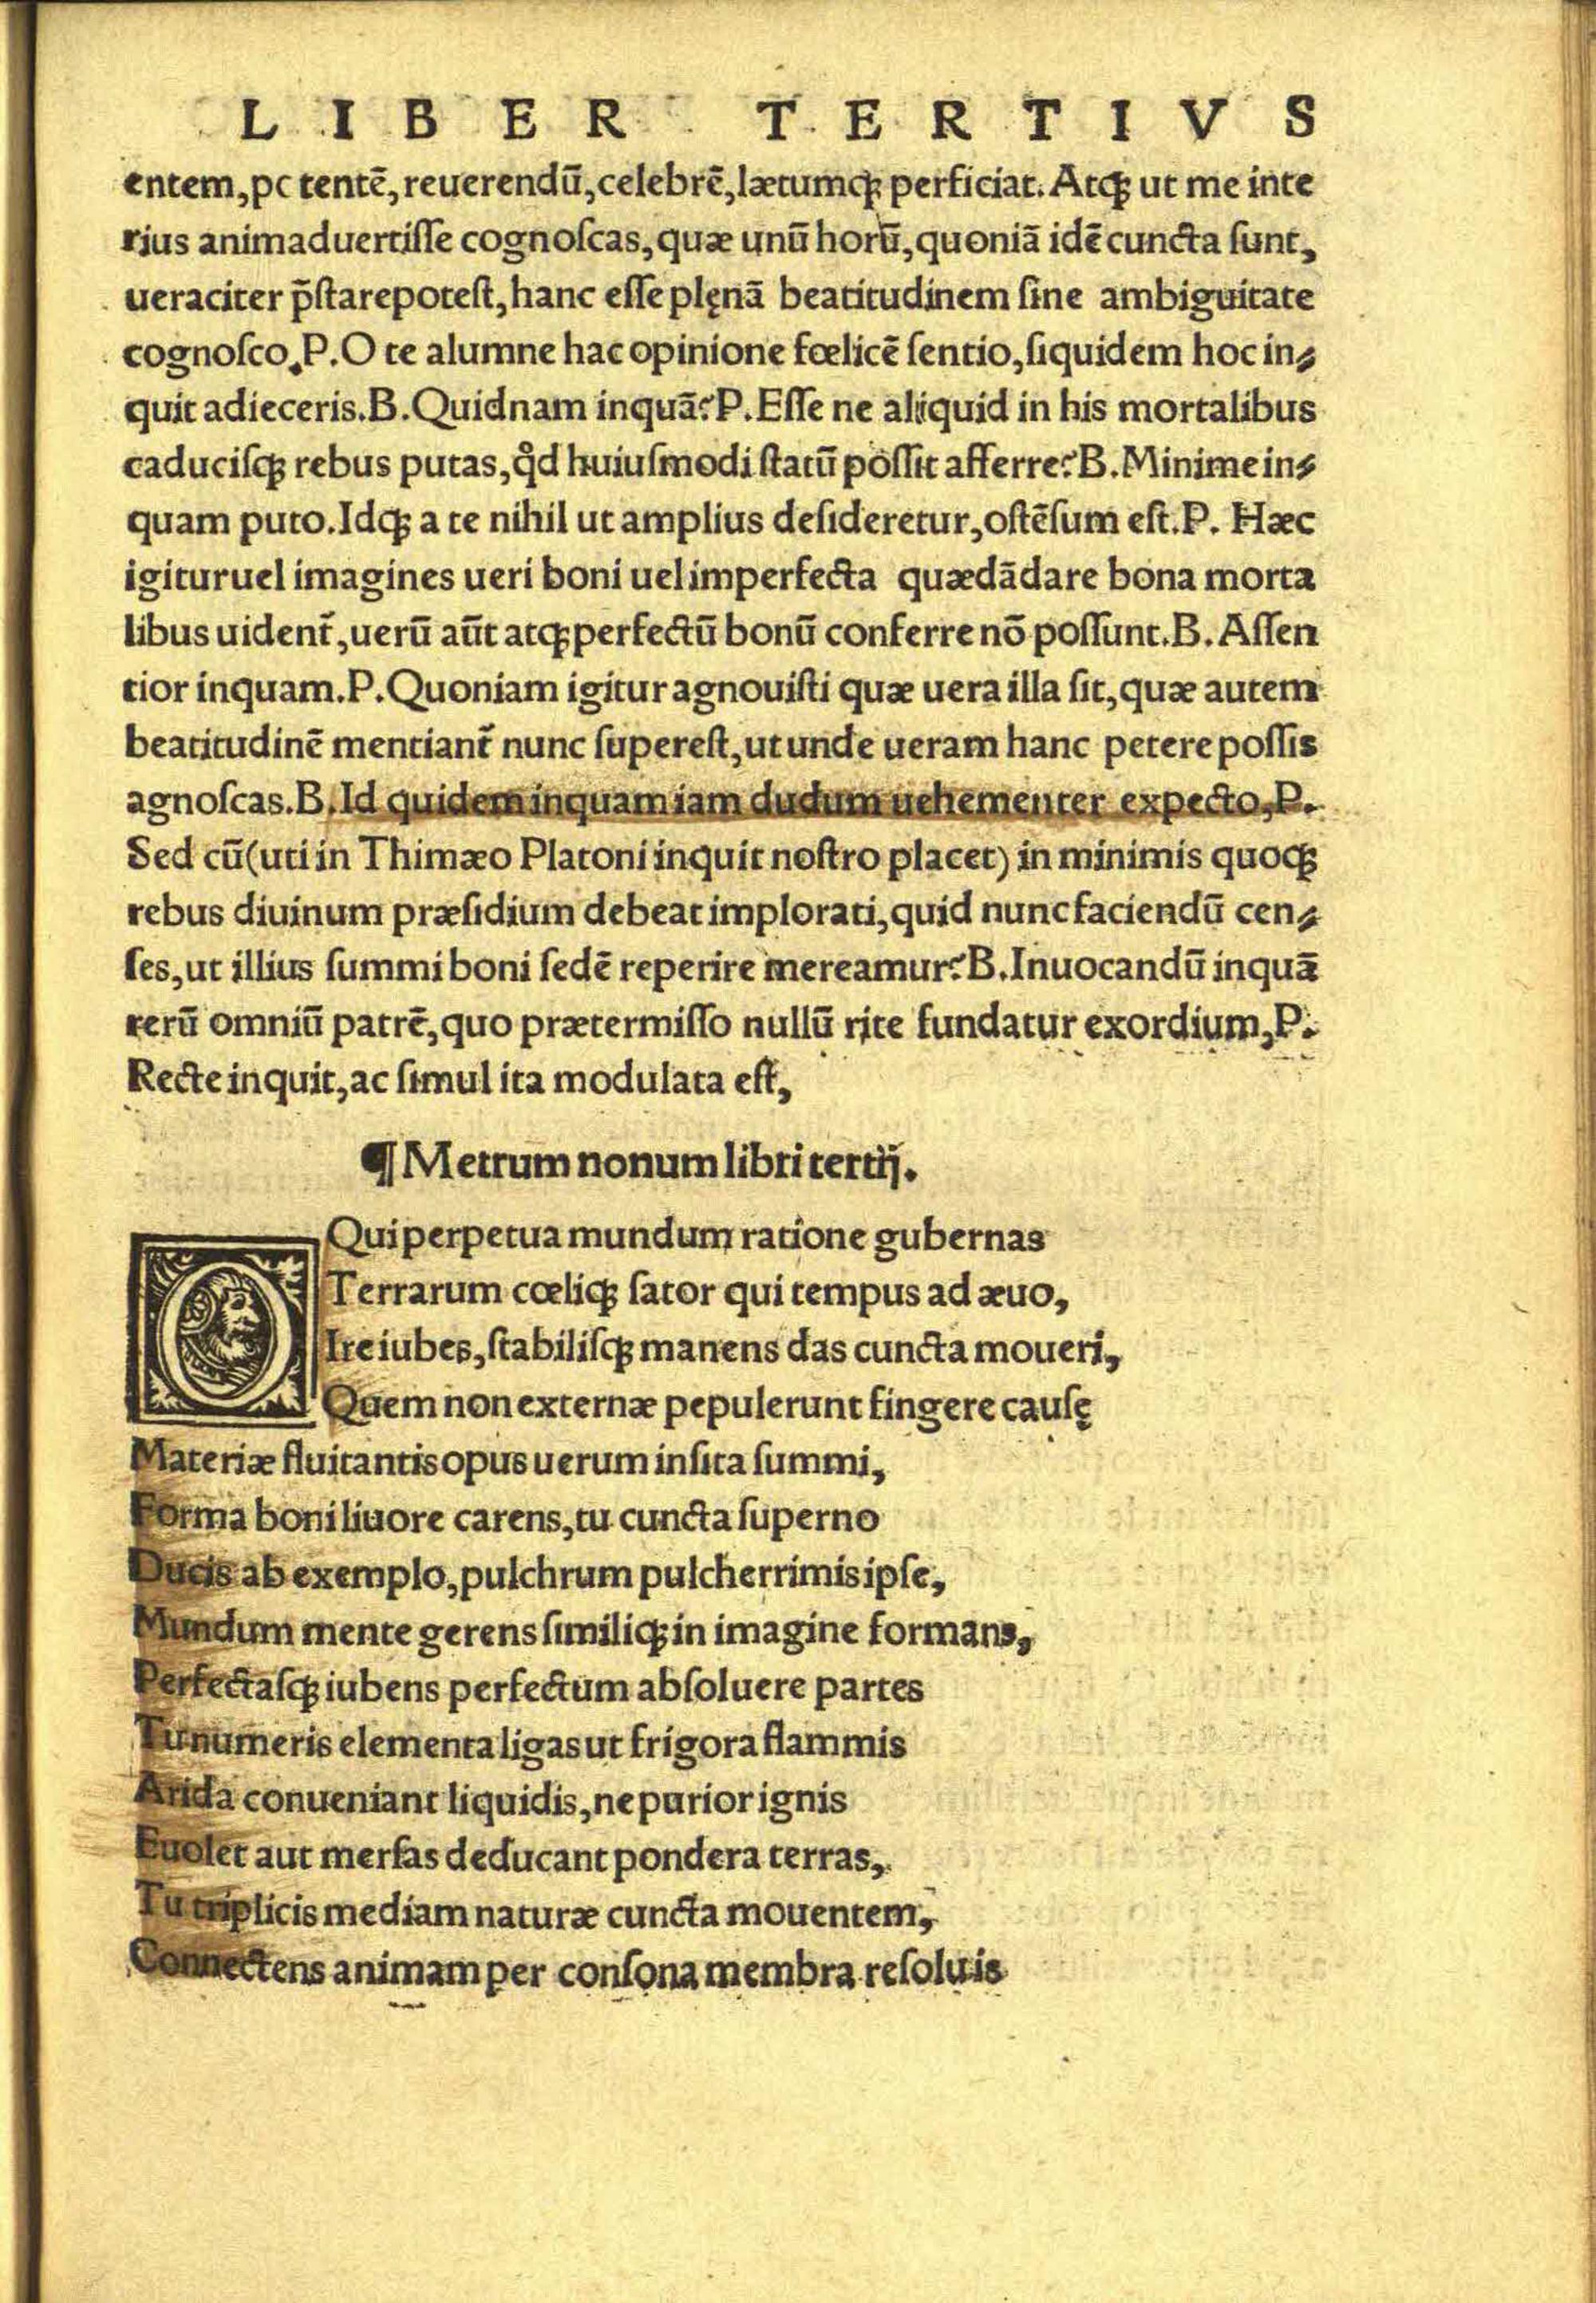 LIBER TERTIVS
entem, pc tentē, reuerendū, celebrē, lætumqꝫ perficiat. Atqꝫ ut me inte
rius animaduertiſſe cognoſcas, quæ unū horū, quoniā idē cuncta ſunt,
ueraciter p̄ſtarepoteſt, hanc eſſe plęnā beatitudinem ſine ambiguitate
cognoſco. P. O te alumne hac opinione fœlicē ſentio, ſiquidem hoc in⸗
quit adieceris. B. Quidnam inquā? P. Eſſe ne aliquid in his mortalibus
caduciſqꝫ rebus putas, qͦd huiuſmodi ſtatū poſſit afferre? B. Minime in⸗
quam puto. Idqꝫ a te nihil ut amplius deſideretur, oſtēſum eſt. P. Hæc
igitur uel imagines ueri boni uel imperfecta quædādare bona morta
libus uident᷑, uerū aūt atqꝫ perfectū bonū conferre nō poſſunt. B. Aſſen
tior inquam. P. Quoniam igitur agnouiſti quæ uera illa ſit, quæ autem
beatitudinē mentiant᷑ nunc ſupereſt, ut unde ueram hanc petere poſſis
agnoſcas. B. Id quidem inquam iam dudum uehementer expecto, P.
Sed cū (uti in Thimæo Platoni inquit noſtro placet) in minimis quoqꝫ
rebus diuinum præſidium debeat implorari, quid nunc faciendū cen⸗
ſes, ut illius ſummi boni ſedē reperire mereamur? B. Inuocandū inquā
rerū omniū patrē, quo prætermiſſo nullū rite fundatur exordium, P.
Recte inquit, ac ſimul ita modulata eſt,
¶ Metrum nonum libri tertij.
O Qui perpetua mundum ratione gubernas
Terrarum cœliqꝫ ſator qui tempus ad æuo,
Ire iubes, ſtabiliſqꝫ manens das cuncta moueri,
Quem non externæ pepulerunt fingere cauſę
Materiæ fluitantis opus uerum inſita ſummi,
Forma boni liuore carens, tu cuncta ſuperno
Ducis ab exemplo, pulchrum pulcherrimis ipſe,
Mundum mente gerens ſimiliqꝫ in imagine formans,
Perfectaſqꝫ iubens perfectum abſoluere partes
Tu numeris elementa ligas ut frigora flammis
Arida conueniant liquidis, ne purior ignis
Euolet aut merſas deducant pondera terras,
Tu triplicis mediam naturæ cuncta mouentem,
Connectens animam per conſona membra reſoluis